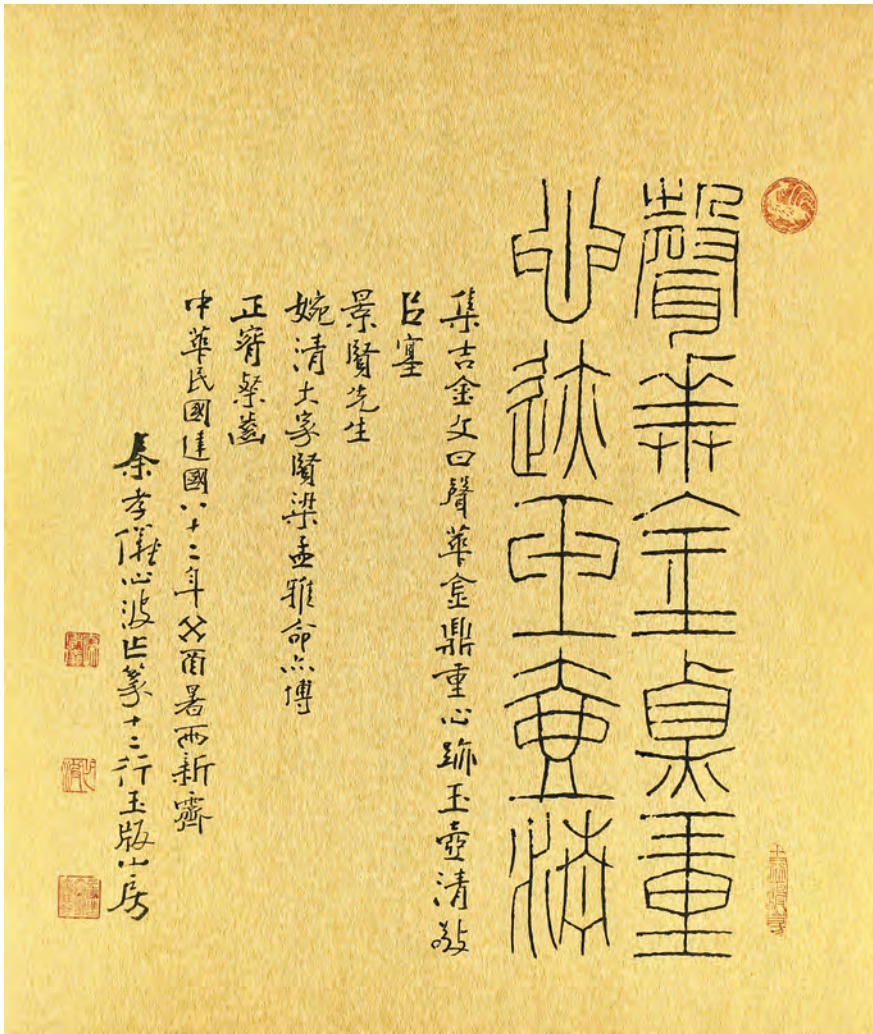 聲華金鼎重
心迹玉壺清
集吉金文曰聲華金鼎重心跡玉壺清敬
㠯塞
景賢先生
婉清大家賢梁孟雅命亦博
正粲
中華民國建國八十二年癸酉暑雨新霽
秦孝儀心波篆十二行玉版山房